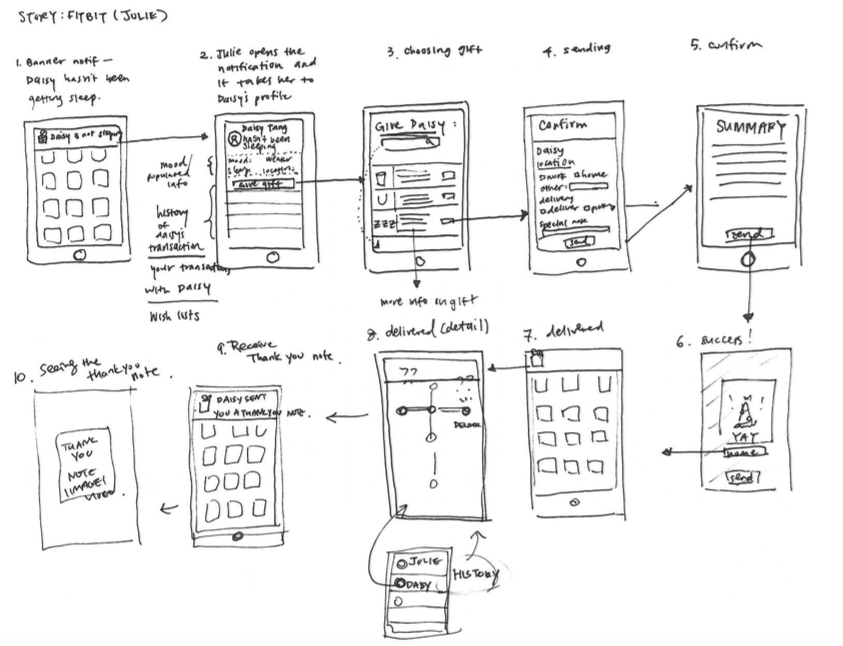 STORY: FITBIT (JULIE)
1. Banner notif —
Daisy hasn't been
getting sleep.
Daisy is not sleeping
2. Julie opens the
notification and
it takes her to
Daisy's profile
Daisy Tang
hasn't been
sleeping
mood:
sleep:
give gift
mood/
populated
info
history
of
daisy's
transaction
your transactions
with DAISY
Wish lists
3. choosing gift
Give Daisy:
ZZZ
more info on gift
4. sending
Confirm
Daisy
location
work
home
other:
delivery
deliver
special note
send
5. confirm
SUMMARY
send
6. success!
YAY
send
7. delivered
8. delivered (detail)
??
??
JULIE
HISTORY
9. Receive
Thank you note.
DAISY SENT
YOU A THANK YOU NOTE.
10. Seeing the
thank you
note.
THANK
YOU
NOTE
/IMAGE/
VIDEO.